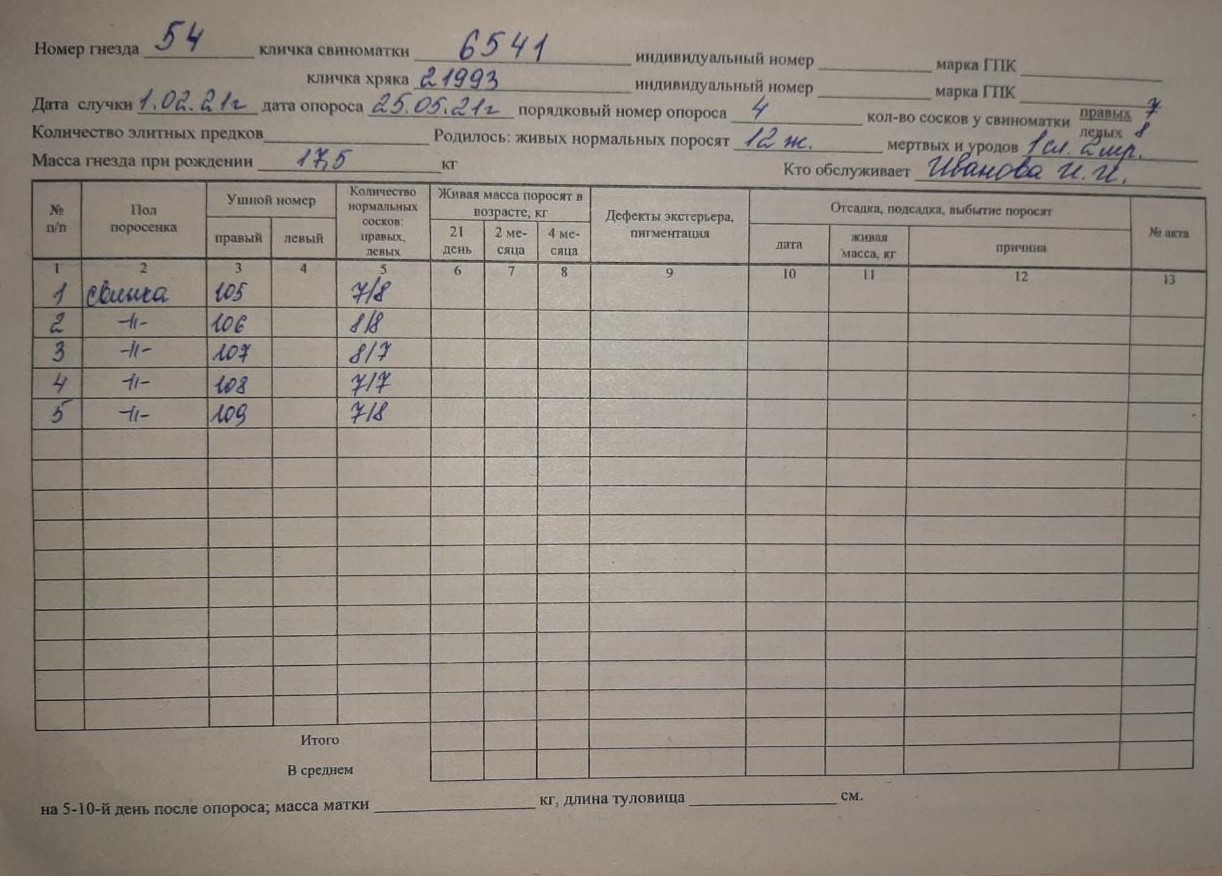 Номер гнезда 54 кличка свиноматки 6541 индивидуальный номер марка ГПК
кличка хряка 21993 индивидуальный номер марка ГПК
Дата случки 1.02.21г дата опороса 25.05.21г порядковый номер опороса 4 кол-во сосков у свиноматки правых 7
левых 8
Количество элитных предков Родилось: живых нормальных поросят 12 ж. мертвых и уродов 1 сл. 2 мр.
Масса гнезда при рождении 17,5 кг Кто обслуживает Иванова И. И.
№ п/п Пол поросенка Ушной номер Количество нормальных сосков: правых, левых Живая масса поросят в возрасте, кг Дефекты экстерьера, пигментация Отсадка, подсадка, выбытие поросят № акта
правый левый 21 день 2 месяца 4 месяца дата живая масса, кг причина
1 2 3 4 5 6 7 8 9 10 11 12 13
1 свинка 105 7/8
2 -||- 106 8/8
3 -||- 107 8/7
4 -||- 108 7/7
5 -||- 109 7/8
Итого
В среднем
на 5-10-й день после опороса; масса матки кг, длина туловища см.